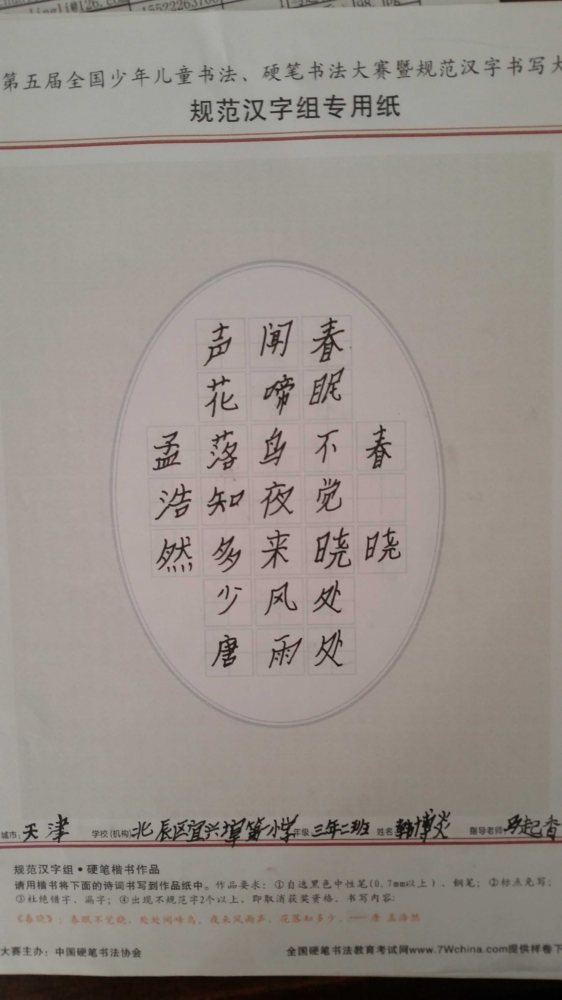 第五届全国少年儿童书法、硬笔书法大赛暨规范汉字书写大
规范汉字组专用纸
春晓
春眠不觉晓处处
闻啼鸟夜来风雨
声花落知多少唐
孟浩然
城市：天津 学校(机构)北辰区宜兴埠第小学年级 三年二班 姓名 韩博炎 指导老师 马起香
规范汉字组·硬笔楷书作品
请用楷书将下面的诗词书写到作品纸中。作品要求：①自选黑色中性笔(0.7mm以上)、钢笔；②标点免写；
③杜绝错字、漏字；④出现不规范字2个以上，即取消获奖资格。书写内容：
《春晓》：春眠不觉晓，处处闻啼鸟，夜来风雨声，花落知多少。——唐 孟浩然
大赛主办：中国硬笔书法协会 全国硬笔书法教育考试网www.7Wchina.com提供样卷下